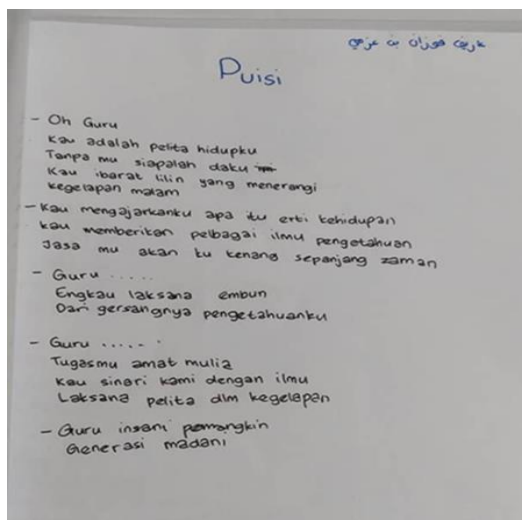 عاريف فوزان بن عزمي
Puisi
- Oh Guru
Kau adalah pelita hidupku
Tanpa mu siapalah daku
Kau ibarat lilin yang menerangi
kegelapan malam
- Kau mengajarkanku apa itu erti kehidupan
kau memberikan pelbagai ilmu pengetahuan
Jasa mu akan ku kenang sepanjang zaman
- Guru .....
Engkau laksana embun
Dari gersangnya pengetahuanku
- Guru ......
Tugasmu amat mulia
Kau sinari kami dengan ilmu
Laksana pelita dlm kegelapan
- Guru insani pemangkin
Generasi madani